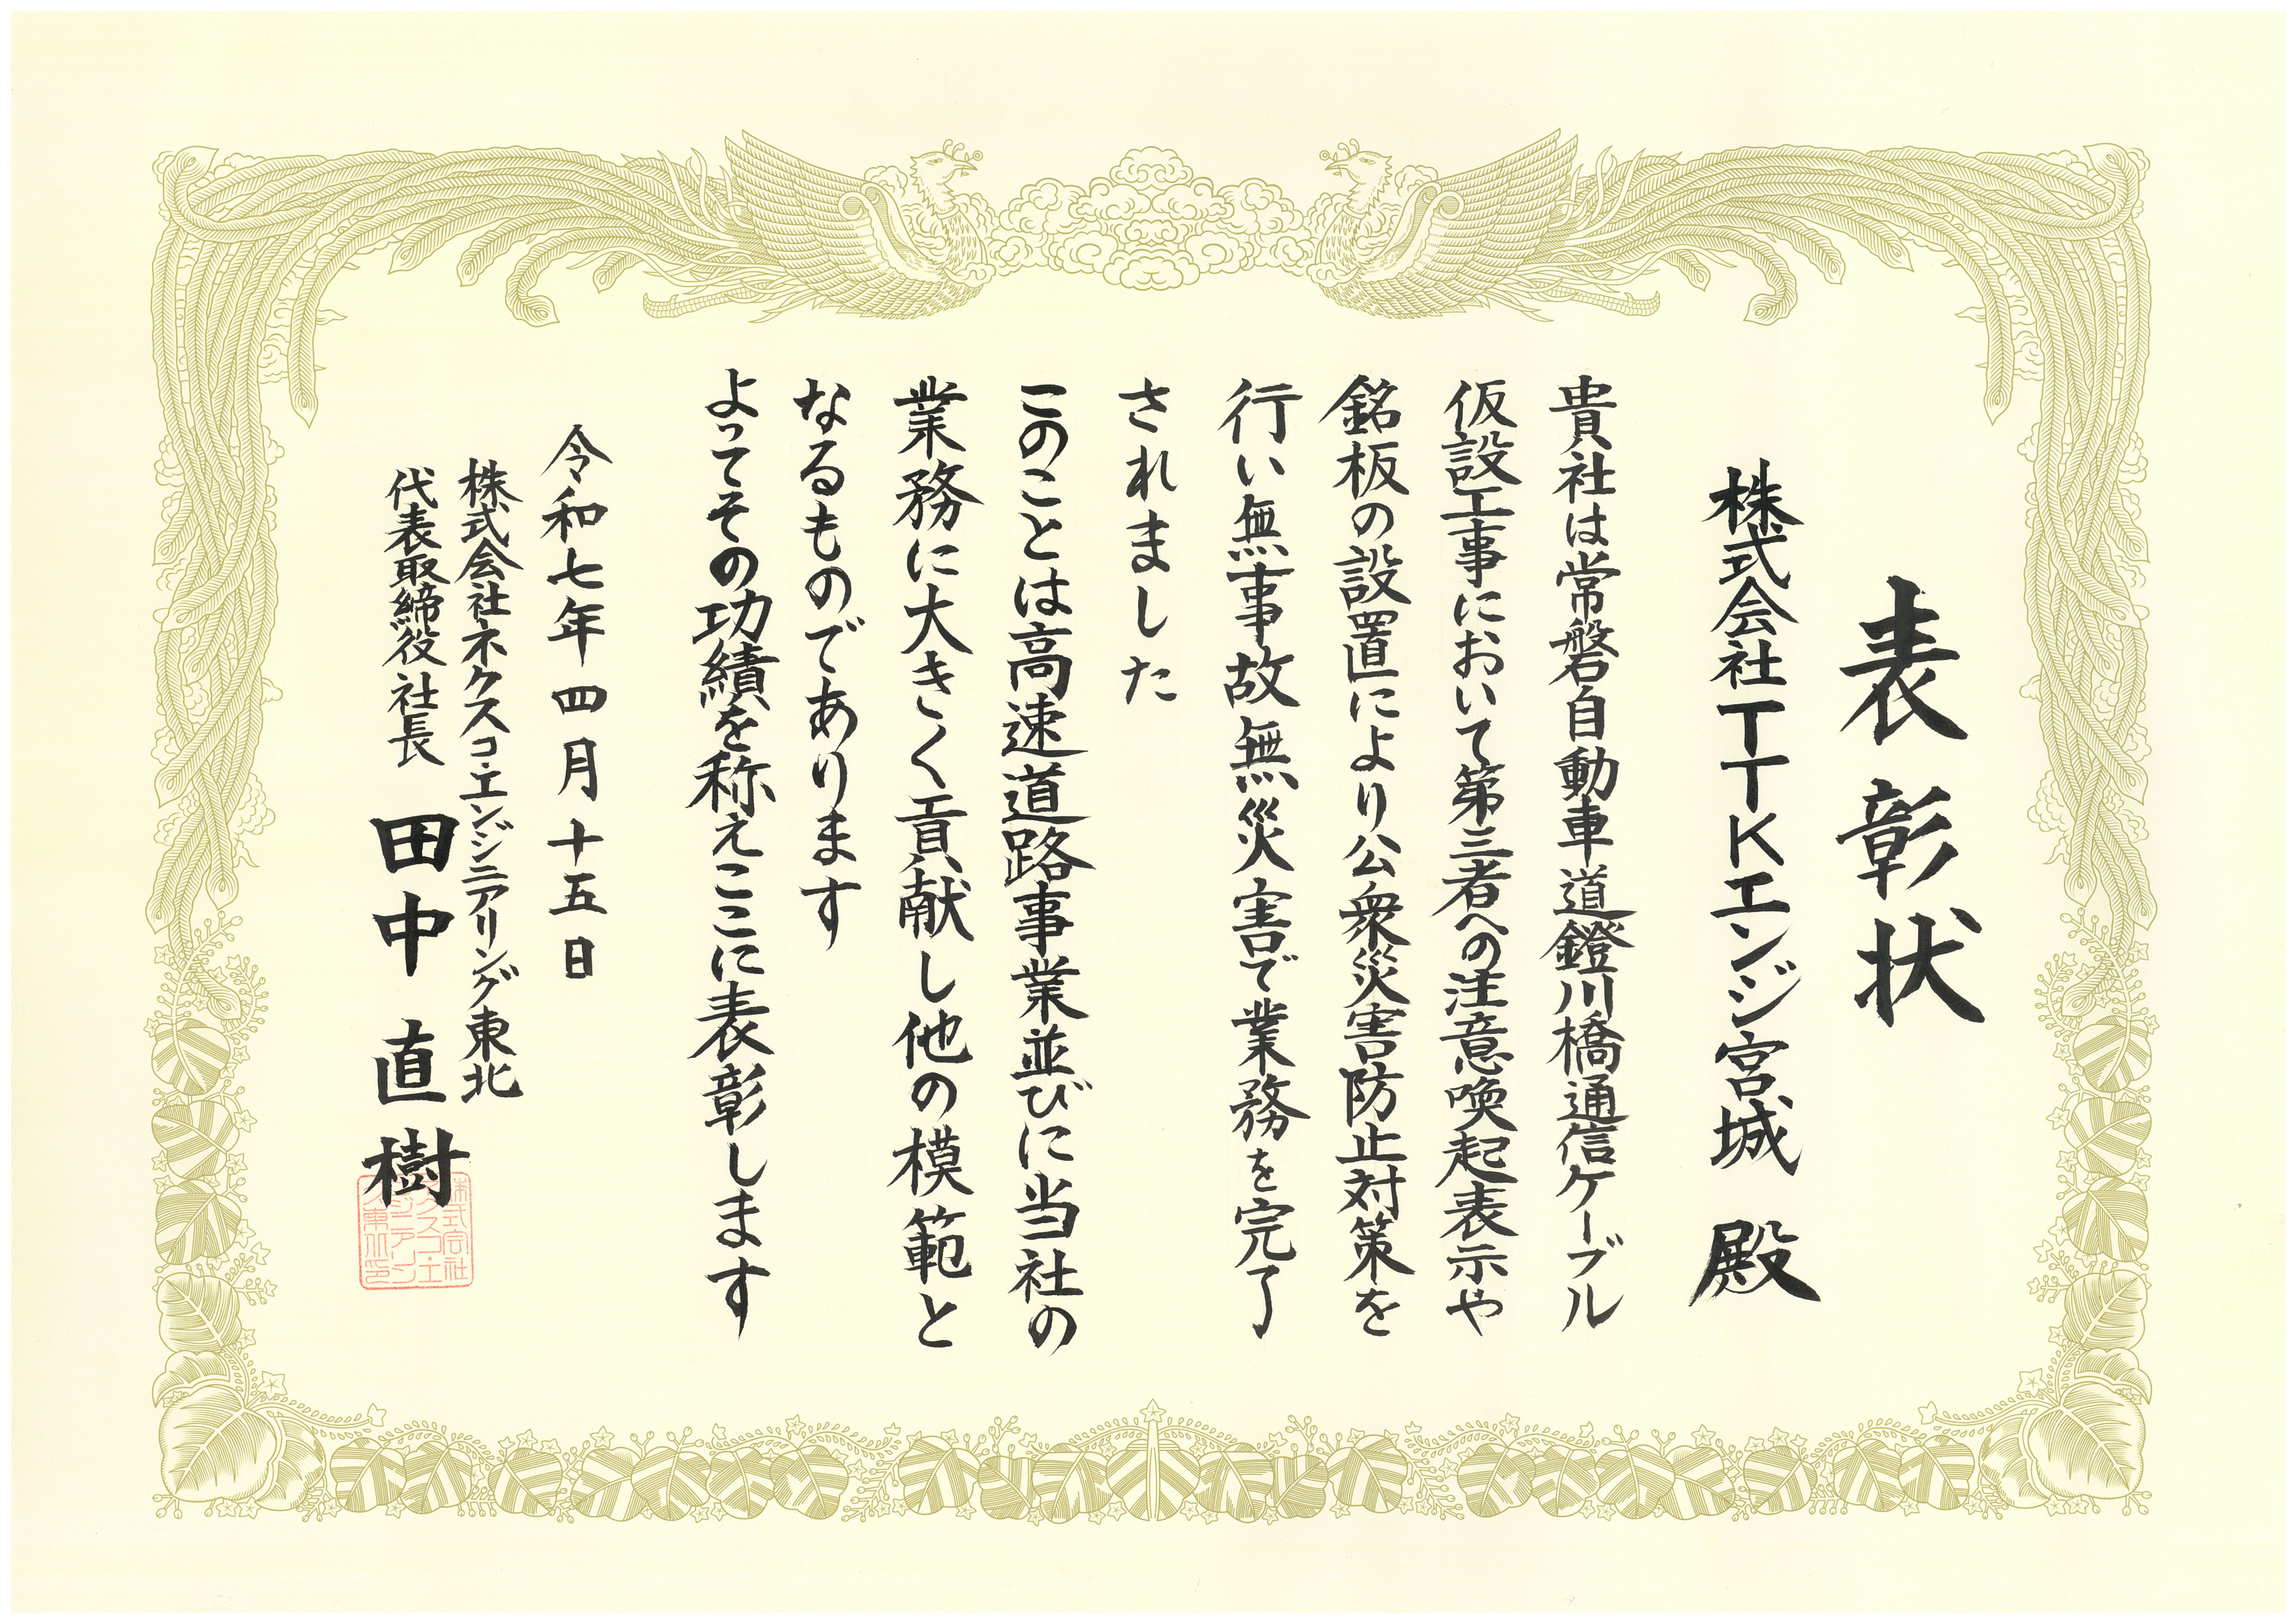 表彰状
株式会社TTKエンジ宮城 殿
貴社は常磐自動車道鐙川橋通信ケーブル
仮設工事において第三者への注意喚起表示や
銘板の設置により公衆災害防止対策を
行い無事故無災害で業務を完了
されました
このことは高速道路事業並びに当社の
業務に大きく貢献し他の模範と
なるものであります
よってその功績を称えここに表彰します
令和七年四月十五日
株式会社ネクスコ・エンジニアリング東北
代表取締役社長 田中直樹